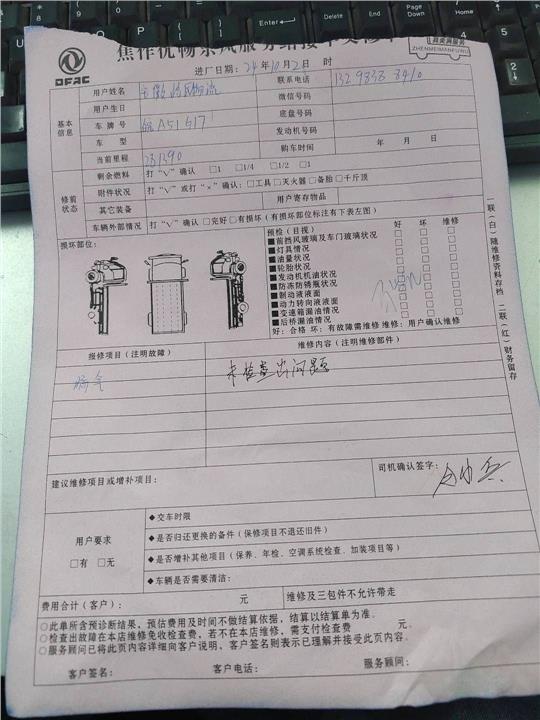 焦作优畅东风服务站接车
真美满服务
ZHENMEIMANFUWU
DFAC
进厂日期：24年10月2日 时
基本信息
用户姓名 联系电话
用户生日 微信号码
车牌号 皖A51617 底盘号码
车型 发动机号码
当前里程 281290 购车时间 年 月 日
修前状态
剩余燃料 打“∨”确认 □1 □1/4 □1/2 □1
附件状况 打“∨”或打“×”确认：□工具□灭火器□备胎□千斤顶
其它装备 用户寄存物品
车辆外部情况 打“∨”确认□完好□有损坏(有损坏部位标注有下表左图)
损坏部位：
预检(目视) 好 坏 维修
■前挡风玻璃及车门玻璃状况 □ □ □
■灯具情况 □ □ □
■油量状况 □ □ □
■轮胎状况 □ □ □
■发动机机油状况 □ □ □
■防冻防锈瓶状况 □ □ □
■制动液液面 □ □ □
■动力转向液液面 □ □ □
■变速箱漏油情况 □ □ □
■后桥漏油情况 □ □ □
好：合格 坏：有故障需维修 维修：用户确认维修
一联(白)随维修资料存档 二联(红)财务留存
报修项目(注明故障) 维修内容(注明维修部件)
漏气 未检查出问题
建议维修项目或增补项目： 司机确认签字：
用户要求
□有 □无
◆交车时限
◆是否归还更换的备件(保修项目不退还旧件)
◆是否增补其他项目(保养、年检、空调系统检查、加装项目等)
◆车辆是否需要清洁：
费用合计(客户)： 元 维修及三包件不允许带走
○此单所含预诊断结果，预估费用及时间不做结算依据，结算以结算单为准。
○检查出故障在本店维修免收检查费，若不在本店维修，需支付检查费 元。
○服务顾问已将此页内容详细向客户说明，客户签名则表示已理解并接受此页内容。
客户签名： 客户电话： 服务顾问：